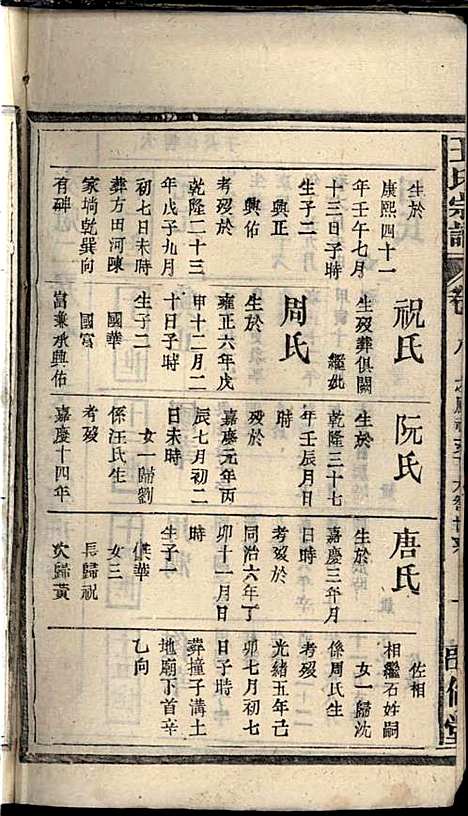 王氏宗譜
卷
生於
康熙四十一
年壬午七月
十三日子時
生子二
興正
興佑
考歿於
乾隆二十三
年戊子九月
初七日未時
葬方田河陳
家塆乾巽向
有碑
祝氏
生歿葬俱闕
繼妣
周氏
生於
雍正六年戊
申十二月二
十日子時
生子二
國華
國富
富兼承興佑
阮氏
生於
乾隆三十七
年壬辰月日
時
歿於
嘉慶元年丙
辰七月初二
日未時
女一歸劉
係汪氏生
考歿
嘉慶十四年
唐氏
生於
嘉慶三年月
日時
考歿於
同治六年丁
卯十一月日
時
生子
俱華
女三
長歸祝
次歸黃
佐相
相繼石姓嗣
女一歸沈
係周氏生
考歿
光緒五年己
卯七月初七
日子時
葬撞子溝土
地廟下首辛
乙向